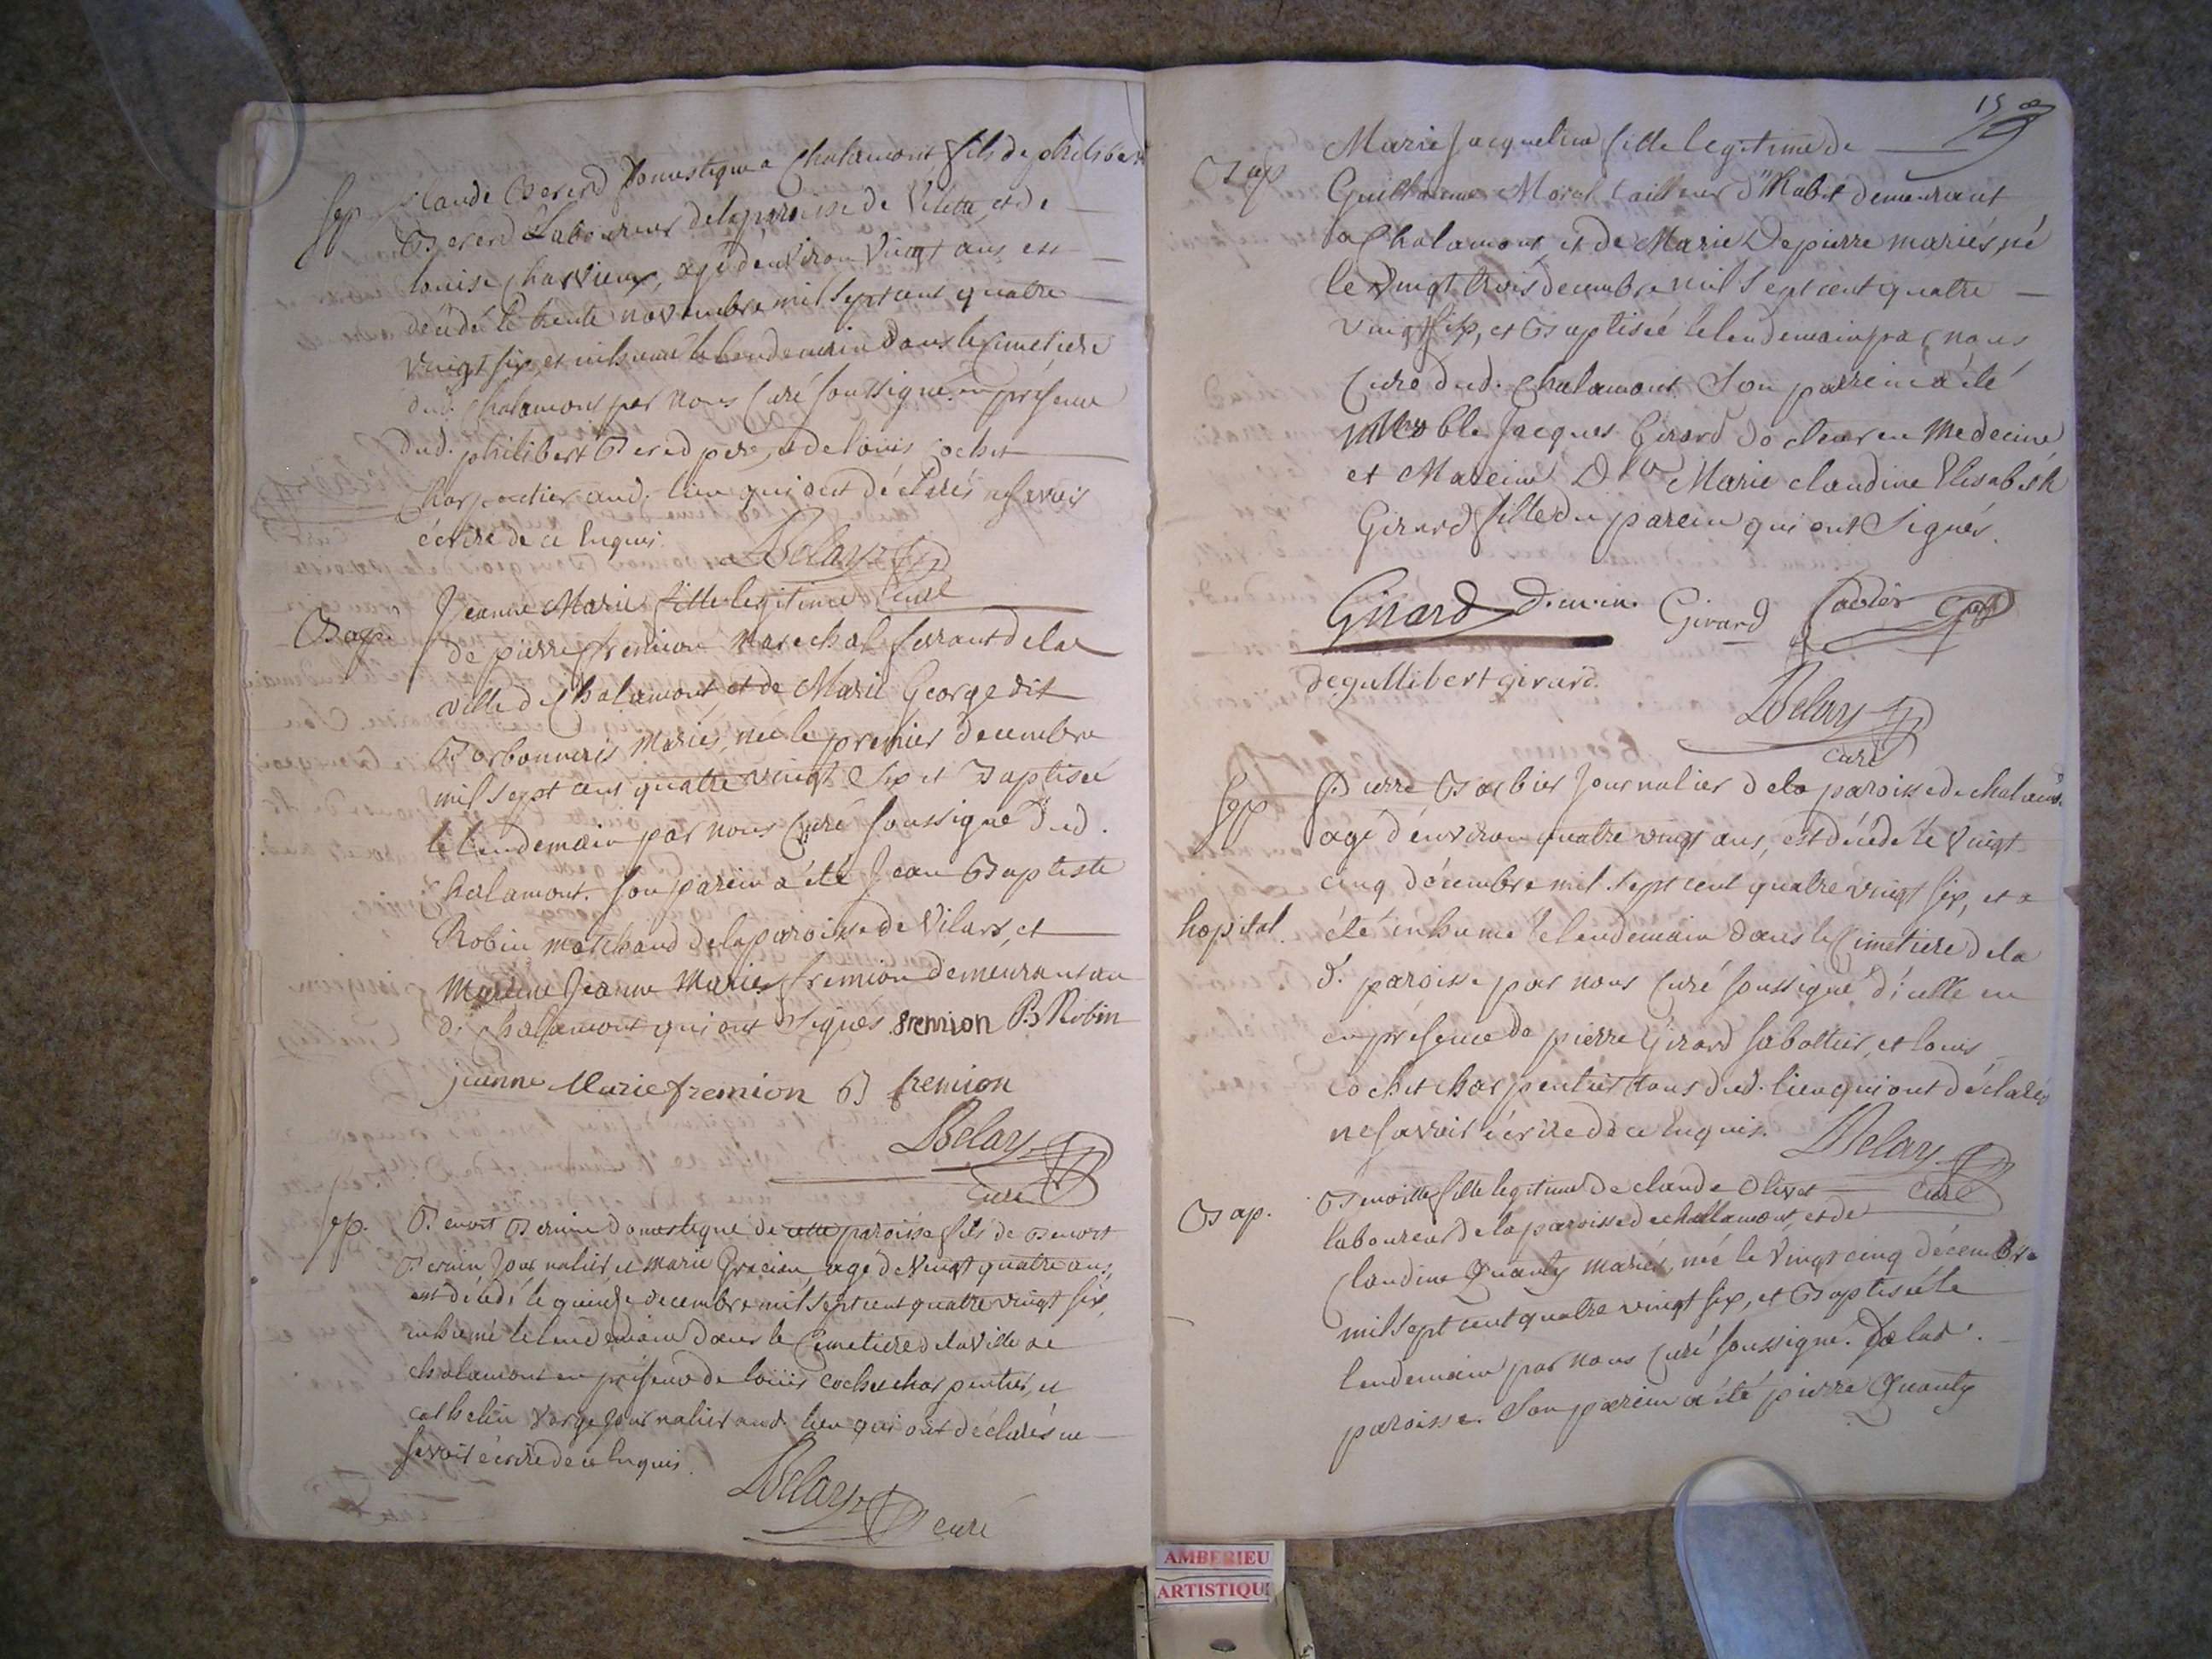 Sep. Claude Bererd Domestique a Chalamont fils de philibert
Bererd Laboureur de la paroisse de Vilette, et de
louise Charvieux, agé d'environ vingt ans, est
décédé le trente novembre mil sept cent quatre
vingt six, et inhumé le lendemain Dans le Cimetiere
dud. Chalamont par nous Curé soussigné en présence
dud. philibert Bererd pere, et de louis Cochet
Charpentier aud. lieu qui ont déclarés ne savoir
écrire de ce Enquis.
Delay
Curé
Bap. Jeanne Marie fille legitime
de pierre fremion Marechal ferrant de la
ville de Chalamont, et de Marie George dit
Bourbonneris mariés, née le premier decembre
mil sept cent quatre vingt six et Baptisée
le lendemain par nous Curé soussigné dud.
Chalamont. son parein a été Jean Baptiste
Robin marchand de la paroisse de Vilars, et
Mareine Jeanne Marie fremion demeurant au
d. Chalamont qui ont signés fremion B Robin
jeanne Marie fremion B fremion
Delay
Curé
Sep. Benoit Bernin Domestique de cette paroisse fils de Benoit
Bernin Journalier et marie Gracian, agé de Vingt quatre ans,
est décédé le quinze decembre mil sept cent quatre vingt six,
inhumé le lendemain dans le Cimetiere de la Ville de
Chalamont en présence de louis cochet charpentier, et
cathelin Vorge Journalier aud. lieu qui ont déclarés ne
savoir écrire de ce Enquis.
Delay
curé
15
Bap Marie Jacqueline fille legitime de
Guillaume Morel tailleur d'Habit demeurant
a Chalamont, et de Marie Depierre mariés, né
le vingt trois decembre mil sept cent quatre
vingt six, et Baptisée le lendemain par nous
Curé dud. Chalamont. Son parrein a été
Noble Jacques Girard docteur en Medecine
et Mareine Dlle Marie claudine Elisabeth
Girard fille du parein qui ont Signés.
Girard D. m. m. Girard
degullibert girard.
Delay
curé
Sep Pierre Barbier Journalier de la paroisse de chalamont
agé d'environ quatre vingt ans, est décédé le vingt
cinq décembre mil sept cent quatre vingt six, et a
hopital. été inhumé le lendemain dans le Cimetiere de la
d. paroisse par nous Curé soussigné d'icelle en
en présence de pierre Girard sabottier, et louis
cochet charpentier tous dud. lieu qui ont déclarés
ne savoir écrire de ce Enquis.
Delay
Curé
Bap. Benoitte fille legitime de claude Olivet
laboureur de la paroisse de chalamont, et de
Claudine Quanty mariés, née le Vingt cinq décembre
mil sept cent quatre vingt six, et Baptisée le
lendemain par nous Curé soussigné. De lad.
paroisse. Son parein a été pierre Quanty
AMBERIEU
ARTISTIQUE